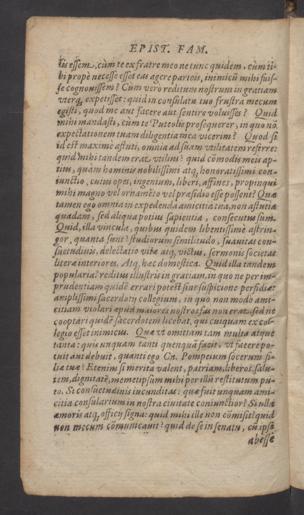 EPIST. FAM.
tis essem, cùm te ex fratre meo ne tunc quidem, cùm ti-
bi propè necesse esset eas agere parteis, inimicũ mihi fuis-
se cognouissem? Cum verò reditum nostrum in gratiam
vterq; expetisset: quid in consulatu tuo frustra mecum
egisti, quod me aut facere aut sentire voluisses? Quid
mihi mandasti, cum te Puteolis prosequerer, in quo nõ
expectationem tuam diligentia mea vicerim? Quod si
id est maximè astuti, omnia ad suam vtilitatem referre:
quid mihi tandem erat vtilius? quid cõmodis meis ap-
tius, quam hominis nobilissimi atq; honoratissimi con-
iunctio, cuius opes, ingenium, liberi, affines, propinqui
mihi magno vel ornamẽto vel præsidio esse possent? Quæ
tamen ego omnia in expedenda amicitia tua, non astutia
quadam, sed aliqua potius sapientia, consecutus sum.
Quid, illa vincula, quibus quidem libentissimè astrin-
gor, quanta sunt? studiorum similitudo, suauitas con-
suetudinis, delectatio vitæ atq; victus, sermonis societas,
literæ interiores. Atq; hæc domestica. Quid illa tandem
popularia? reditus illustris in gratiam, in quo ne per im-
prudentiam quidẽ errari potest sine suspicione perfidiæ:
amplissimi sacerdotij collegium, in quo non modo ami-
citiam violari apud maiores nostros fas non erat, sed ne
cooptari quidẽ sacerdotem licebat, qui cuiquam ex col-
legio esset inimicus. Quæ vt omittam tam multa atque
tanta: quis unquam tanti quenquã fecit, vt facere po-
tuit aut debuit, quanti ego Cn. Pompeium socerum fi-
liæ tuæ? Etenim si merita valent, patriam, liberos, salu-
tem, dignitatẽ, memetipsum mihi per illũ restitutum pu-
to. Si consuetudinis iucunditas: quæ fuit unquam ami-
citia consularium in nostra ciuitate coniunctior? Si illa
amoris atq; officij signa: quid mihi ille non cõmisit? quid
non mecum cõmunicauit? quid de se in senatu, cũ ipse
abesse